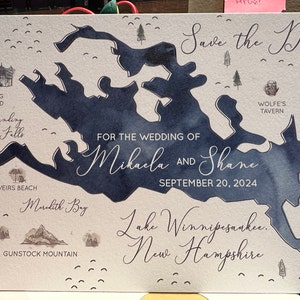 Save the D
WOLFE'S
TAVERN
Falls
FOR THE WEDDING OF
Mikaela AND Shane
SEPTEMBER 20, 2024
WEIRS BEACH
Meredith Bay
GUNSTOCK MOUNTAIN
Lake Winnipesaukee,
New Hampshire